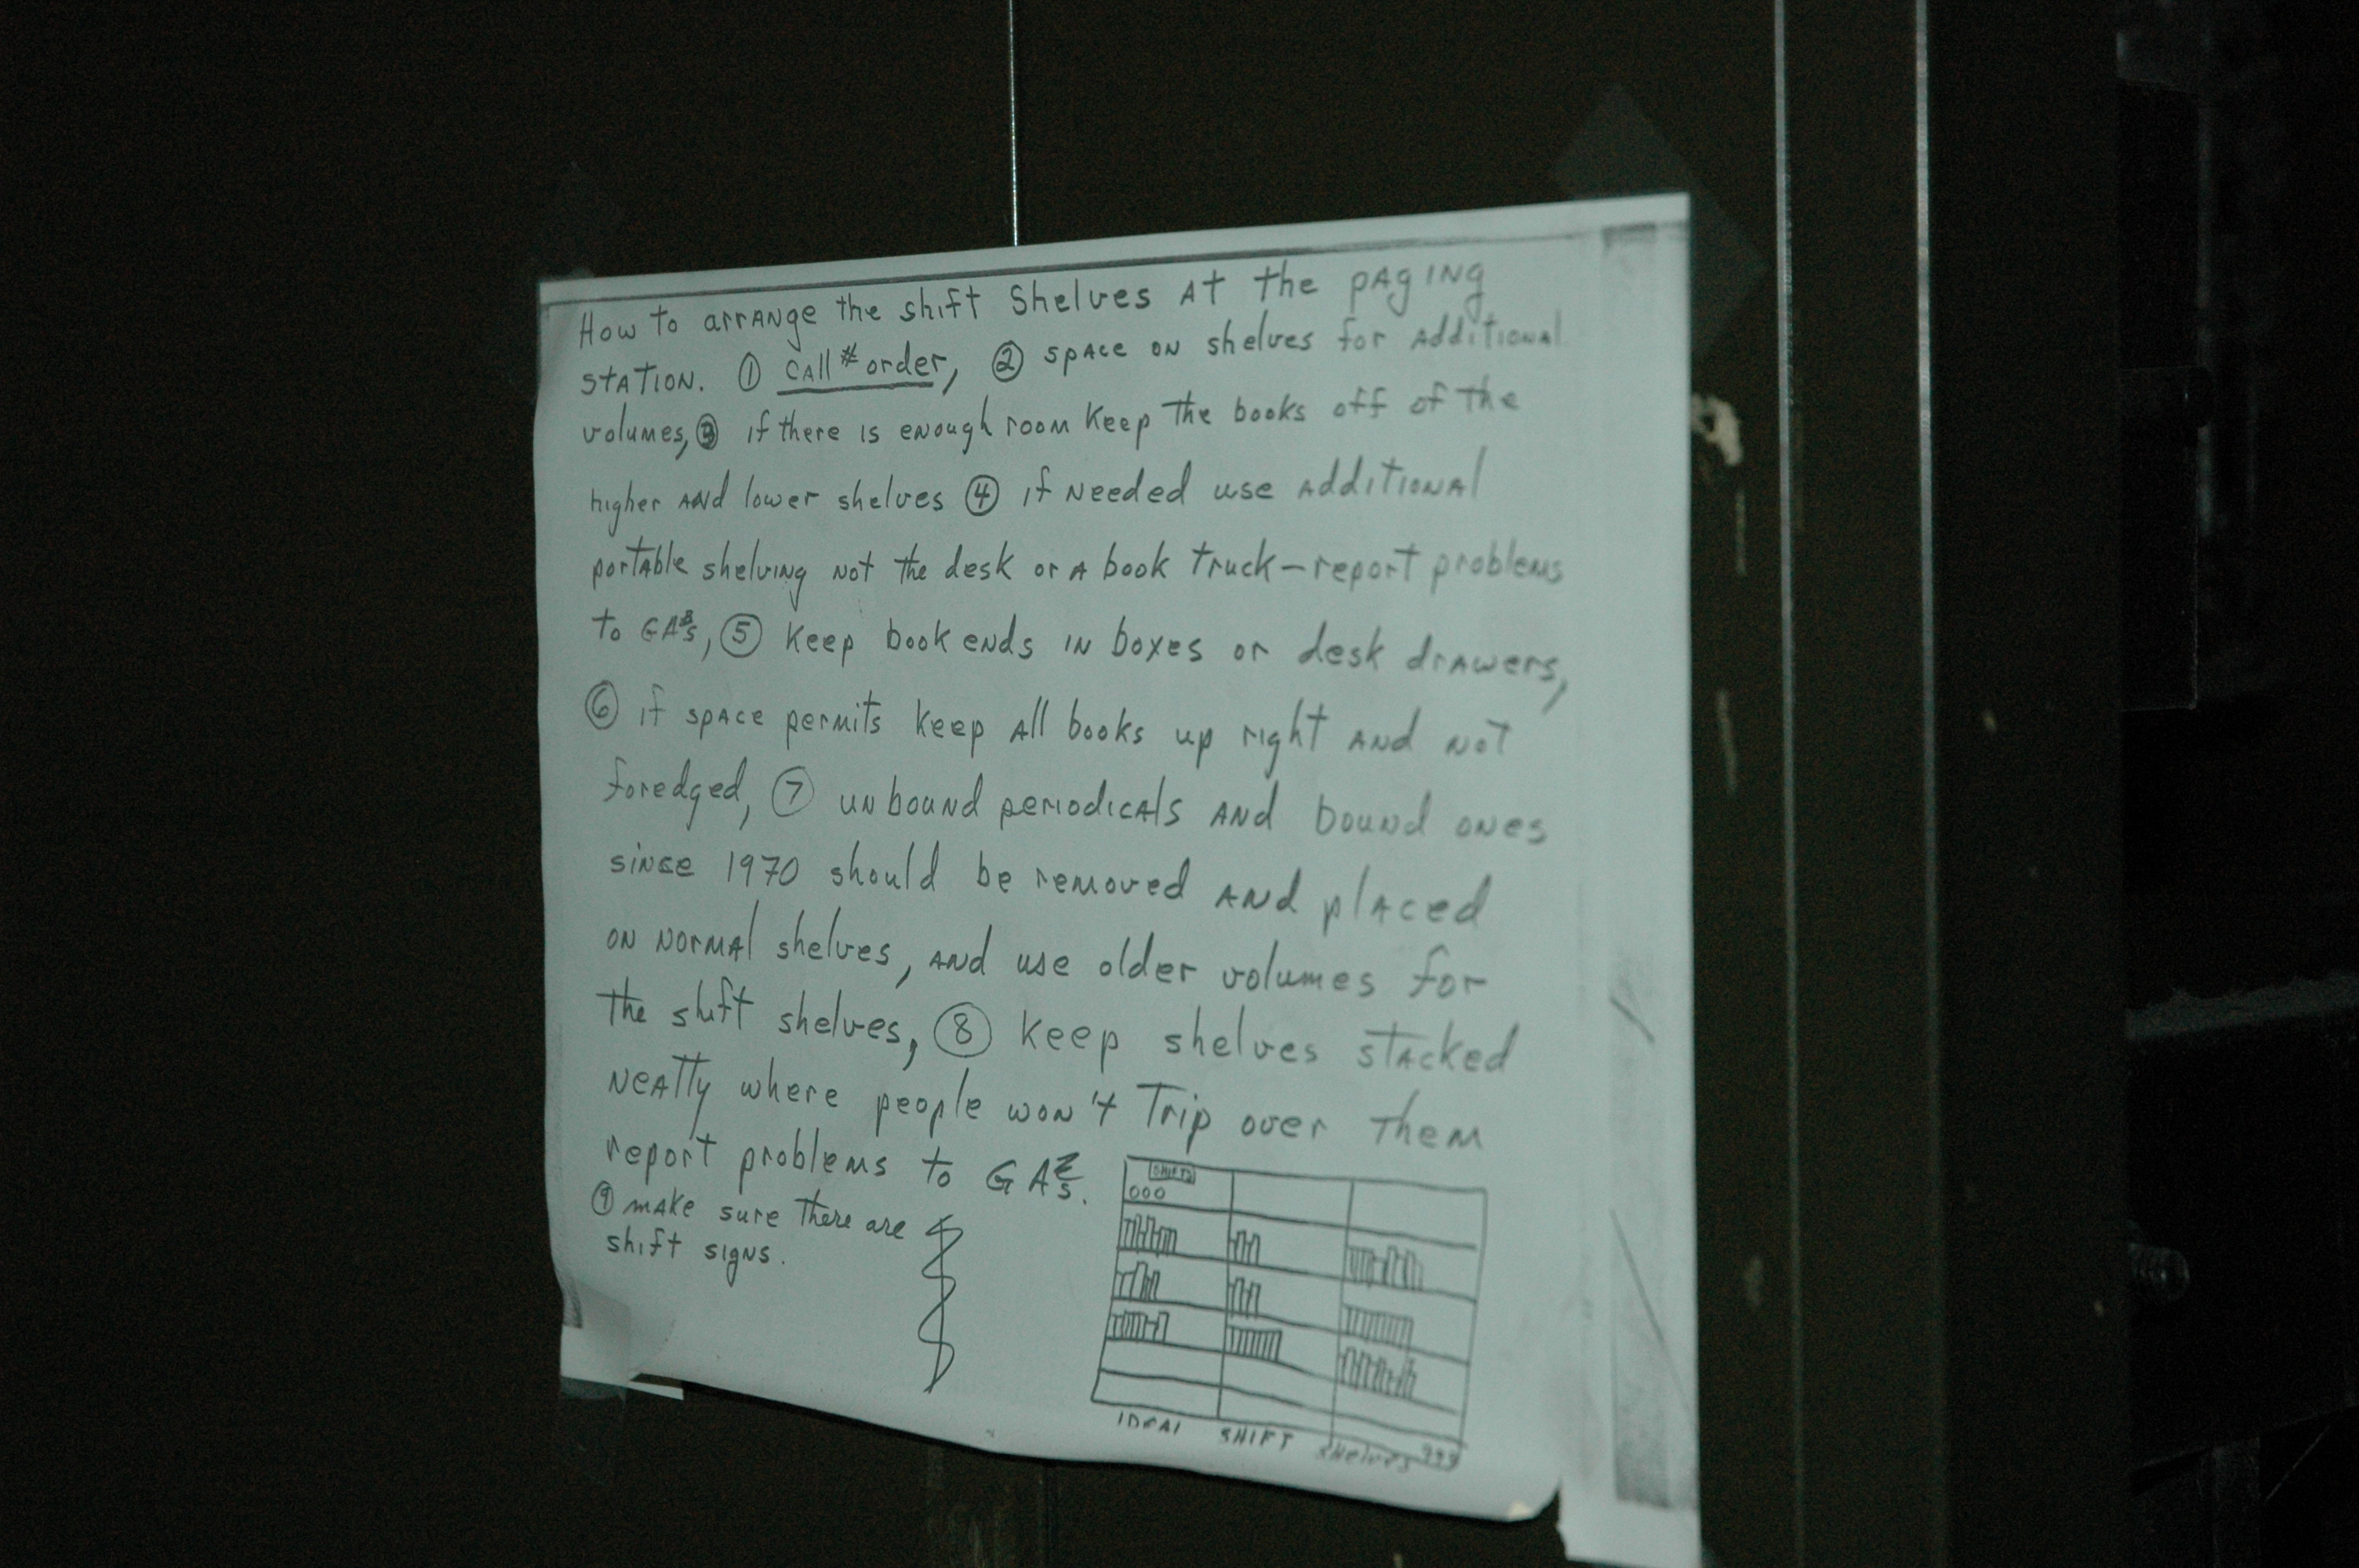 How to arrange the shift shelves at the paging
station. ① call # order, ② space on shelves for additional
volumes, ③ if there is enough room keep the books off of the
higher and lower shelves ④ if needed use additional
portable shelving not the desk or a book truck—report problems
to GA's, ⑤ keep book ends in boxes or desk drawers,
⑥ if space permits keep all books up right and not
foredged, ⑦ unbound periodicals and bound ones
since 1970 should be removed and placed
on normal shelves, and use older volumes for
the shift shelves, ⑧ keep shelves stacked
neatly where people won't trip over them
report problems to GA's.
⑨ make sure there are
shift signs.
SHIFTS
000
IDEAL SHIFT shelves